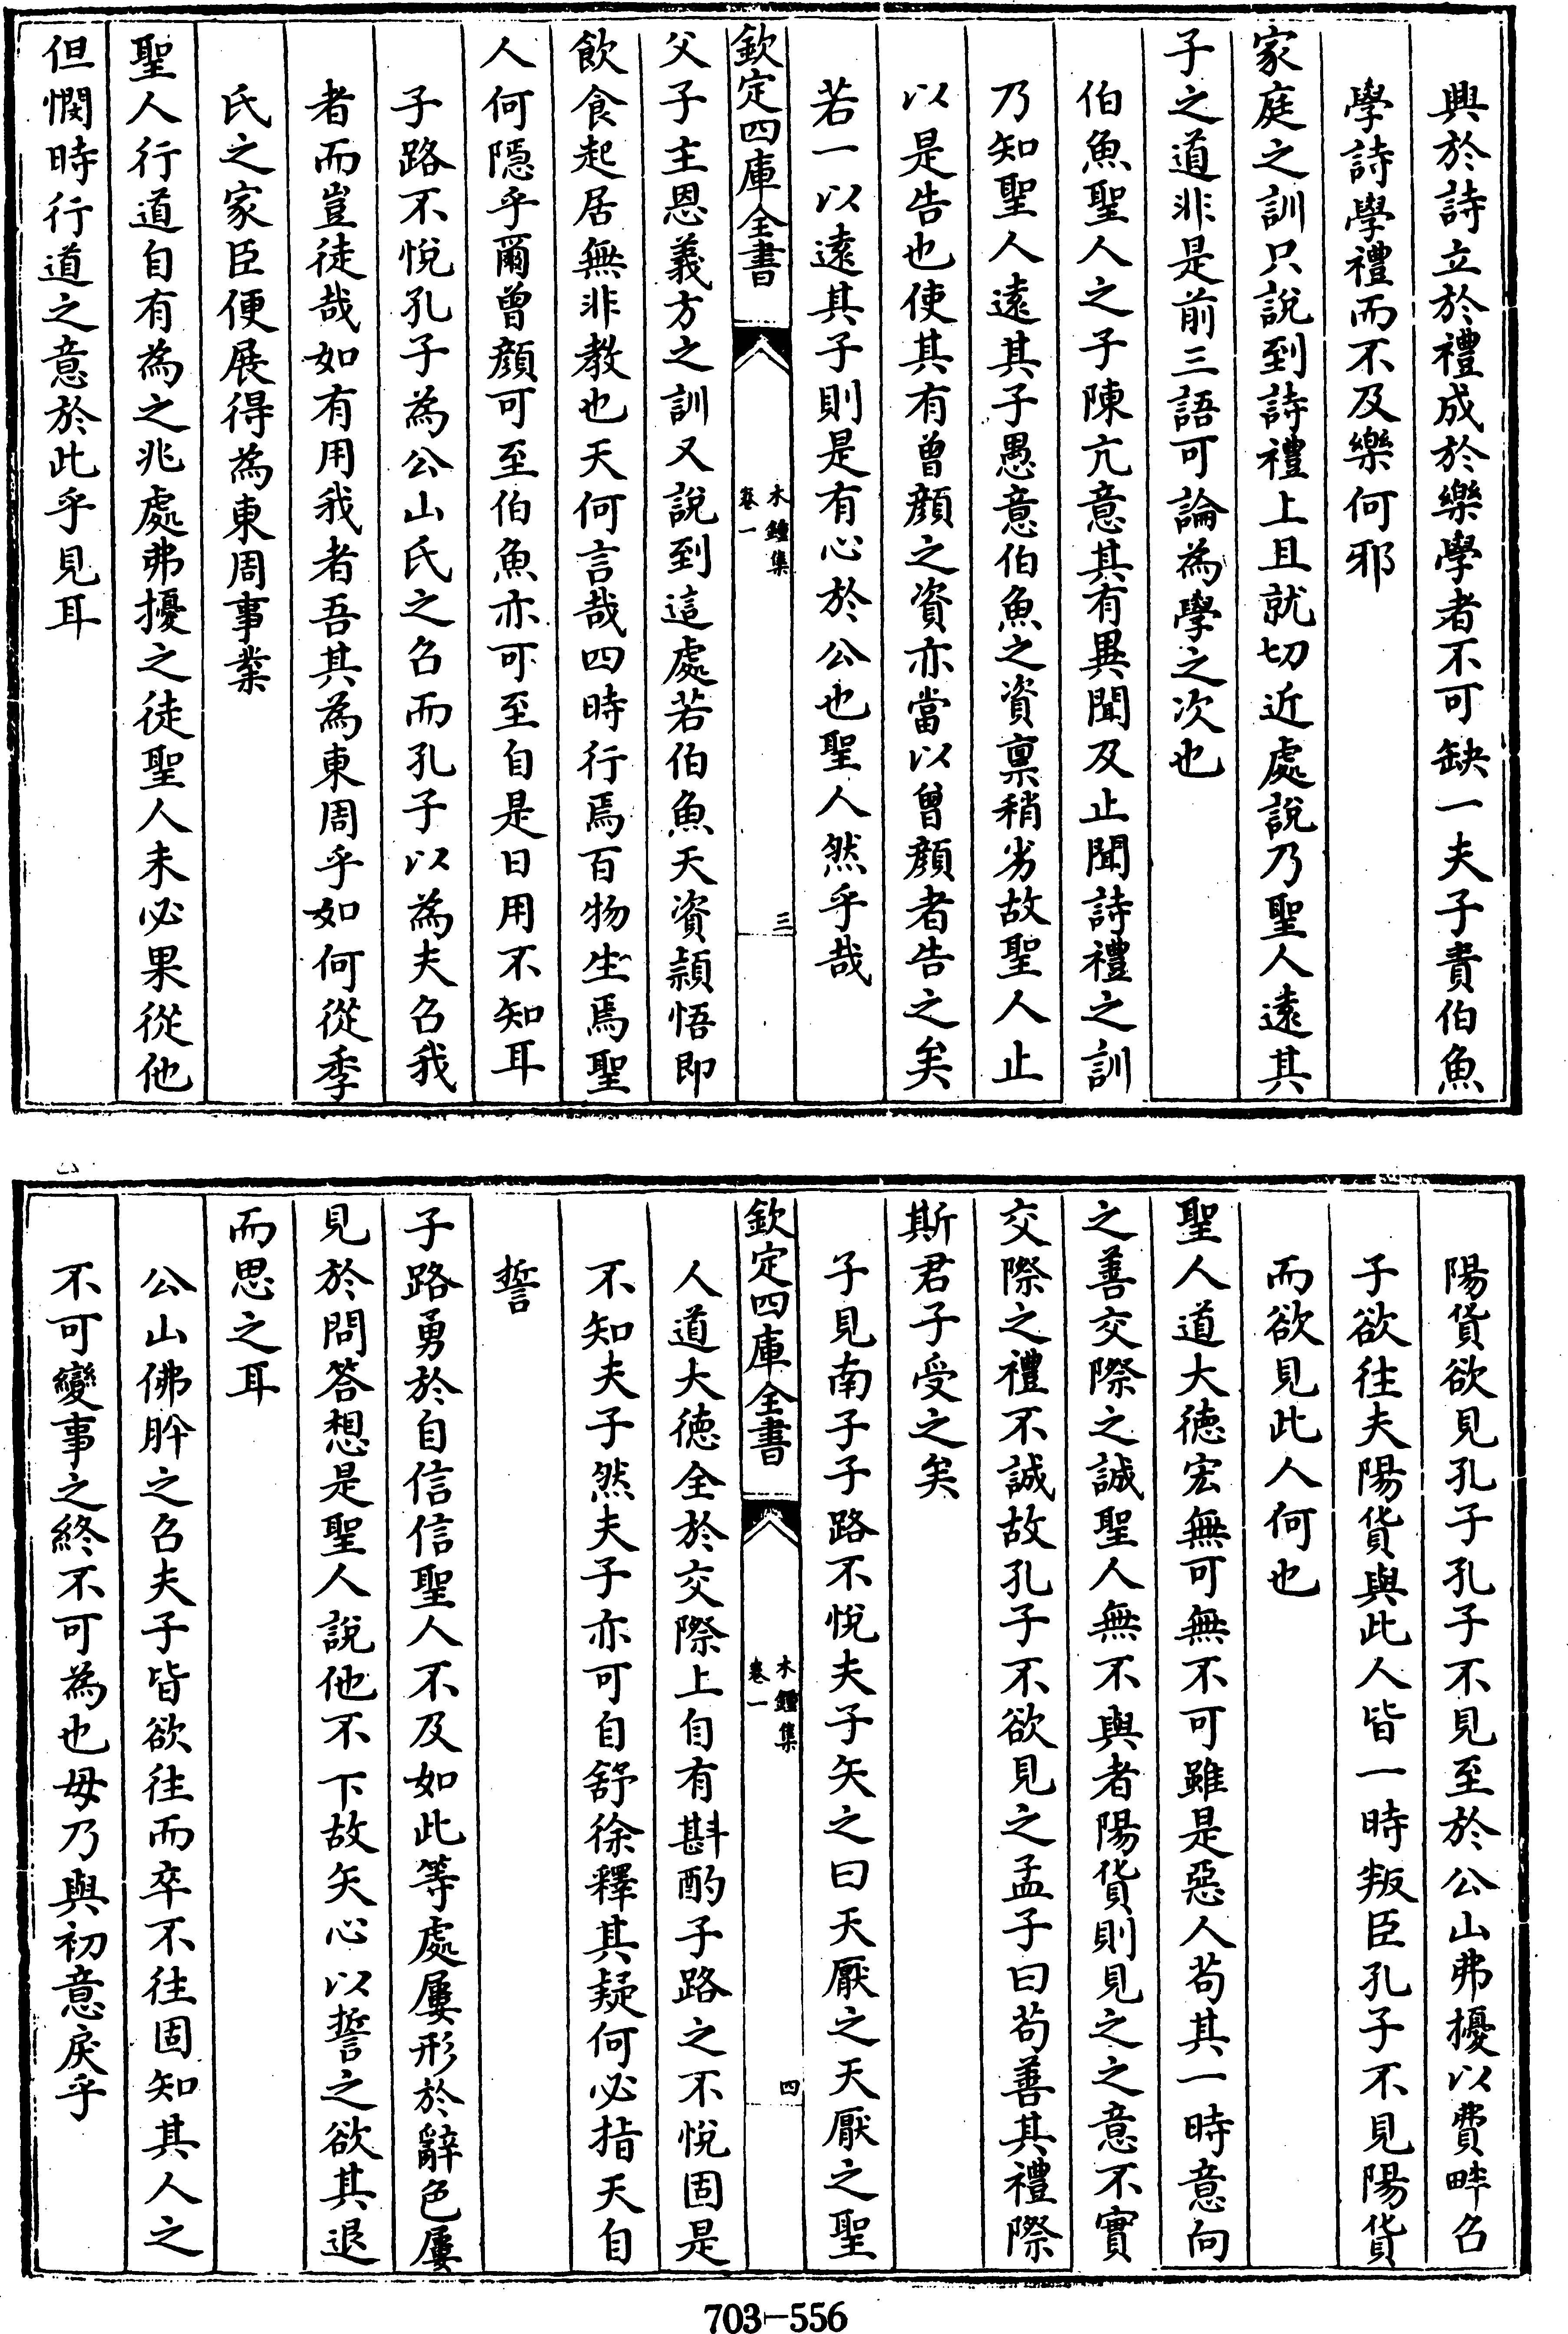 興於詩立於禮成於樂學者不可缺一夫子責伯魚
學詩學禮而不及樂何邪
家庭之訓只說到詩禮上且就切近處說乃聖人遠其
子之道非是前三語可論為學之次也
伯魚聖人之子陳亢意其有異聞及止聞詩禮之訓
乃知聖人遠其子愚意伯魚之資稟稍劣故聖人止
以是告也使其有曾顔之資亦當以曾顔者告之矣
若一以遠其子則是有心於公也聖人然乎哉
欽定四庫全書
木鐘集
卷一
三
父子主恩義方之訓又說到這處若伯魚天資頴悟即
飲食起居無非教也天何言哉四時行焉百物生焉聖
人何隱乎爾曾顔可至伯魚亦可至自是日用不知耳
子路不悅孔子為公山氏之召而孔子以為夫召我
者而豈徒哉如有用我者吾其為東周乎如何從季
氏之家臣便展得為東周事業
聖人行道自有為之兆處弗擾之徒聖人未必果從他
但憫時行道之意於此乎見耳
陽貨欲見孔子孔子不見至於公山弗擾以費畔召
子欲往夫陽貨與此人皆一時叛臣孔子不見陽貨
而欲見此人何也
聖人道大徳宏無可無不可雖是惡人苟其一時意向
之善交際之誠聖人無不與者陽貨則見之之意不實
交際之禮不誠故孔子不欲見之孟子曰苟善其禮際
斯君子受之矣
子見南子子路不悅夫子矢之曰天厭之天厭之聖
欽定四庫全書
木鐘集
卷一
四
人道大徳全於交際上自有斟酌子路之不悅固是
不知夫子然夫子亦可自舒徐釋其疑何必指天自
誓
子路勇於自信信聖人不及如此等處屢形於辭色屢
見於問答想是聖人說他不下故矢心以誓之欲其退
而思之耳
公山佛肸之召夫子皆欲往而卒不往固知其人之
不可變事之終不可為也毋乃與初意戾乎
703-556